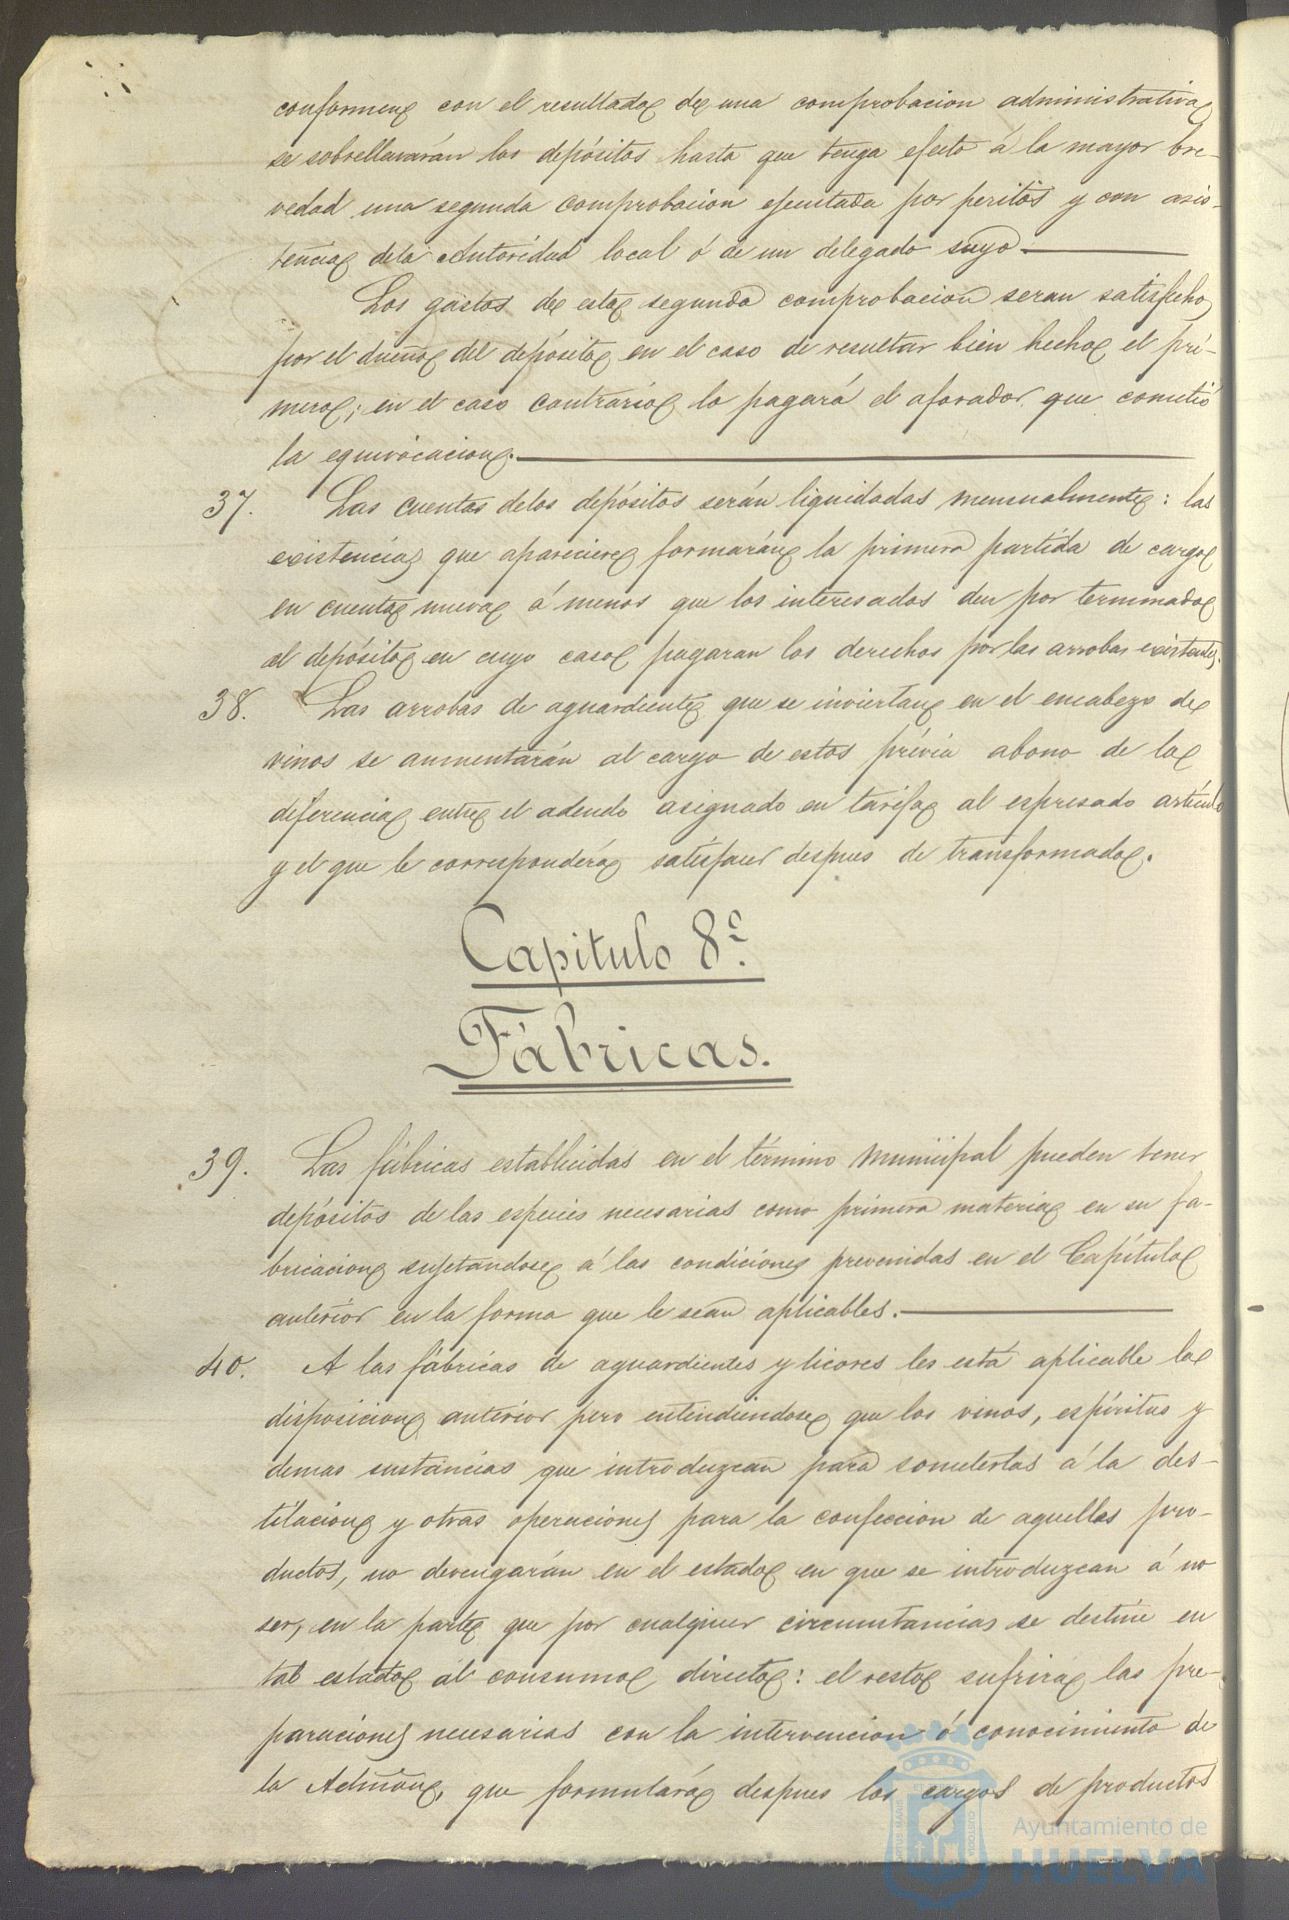 conformen con el resultado de una comprobacion administrativa
se sobrellavarán los depósitos hasta que tenga efecto á la mayor bre-
vedad una segunda comprobacion ejecutada por peritos y con asis-
tencia dela Autoridad local ó de un delegado suyo.
Los gastos de esta segunda comprobacion seran satisfechos
por el dueño del depósito en el caso de resultar bien hecho el pri-
mero; en el caso contrario lo pagará el aforador que cometió
la equivocacion.
37. Las cuentas delos depósitos serán liquidadas mensualmente: las
existencias que apareciere formarán la primera partida de cargo
en cuenta nueva á menos que los interesados den por terminado
el depósito en cuyo caso pagaran los derechos por las arrobas existentes.
38. Las arrobas de aguardiente que se inviertan en el encabezo de
vinos se aumentarán al cargo de estos prévia abono de la
diferencia entre el adeudo asignado en tarifa al espresado artículo
y el que le correspondera satisfacer despues de transformado.
Capitulo 8º.
Fábricas.
39. Las fábricas establecidas en el término municipal pueden tener
depósitos de las especies necesarias como primera materia en su fa-
bricacion sujetandose á las condiciones prevenidas en el Capítulo
anterior en la forma que le sean aplicables.
40. A las fábricas de aguardientes y licores les está aplicable la
disposicion anterior pero entendiendose que los vinos, espíritus y
demas sustancias que introduzcan para someterlas á la des-
tilacion y otras operaciones para la confeccion de aquellos pro-
ductos, no devengarán en el estado en que se introduzcan á no
ser, en la parte que por cualquier circunstancias se destine en
tal estado al consumo directo: el resto sufrirá las pre-
paraciones necesarias con la intervencion ó conocimiento de
la Admon, que formulará despues los cargos de productos
Ayuntamiento de
HUELVA